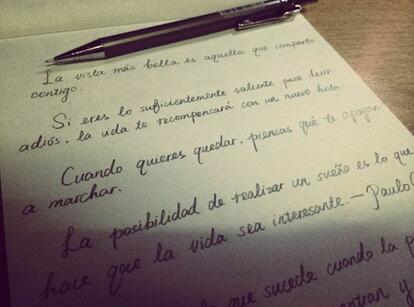 La vista más bella es aquella que comparto
contigo.
Si eres lo suficientemente valiente para decir
adiós, la vida te recompensará con un nuevo hola
Cuando quieres quedar, piensas que te apoyan
a marchar.
La posibilidad de realizar un sueño es lo que
hace que la vida sea interesante.—Paulo
que sucede cuando la